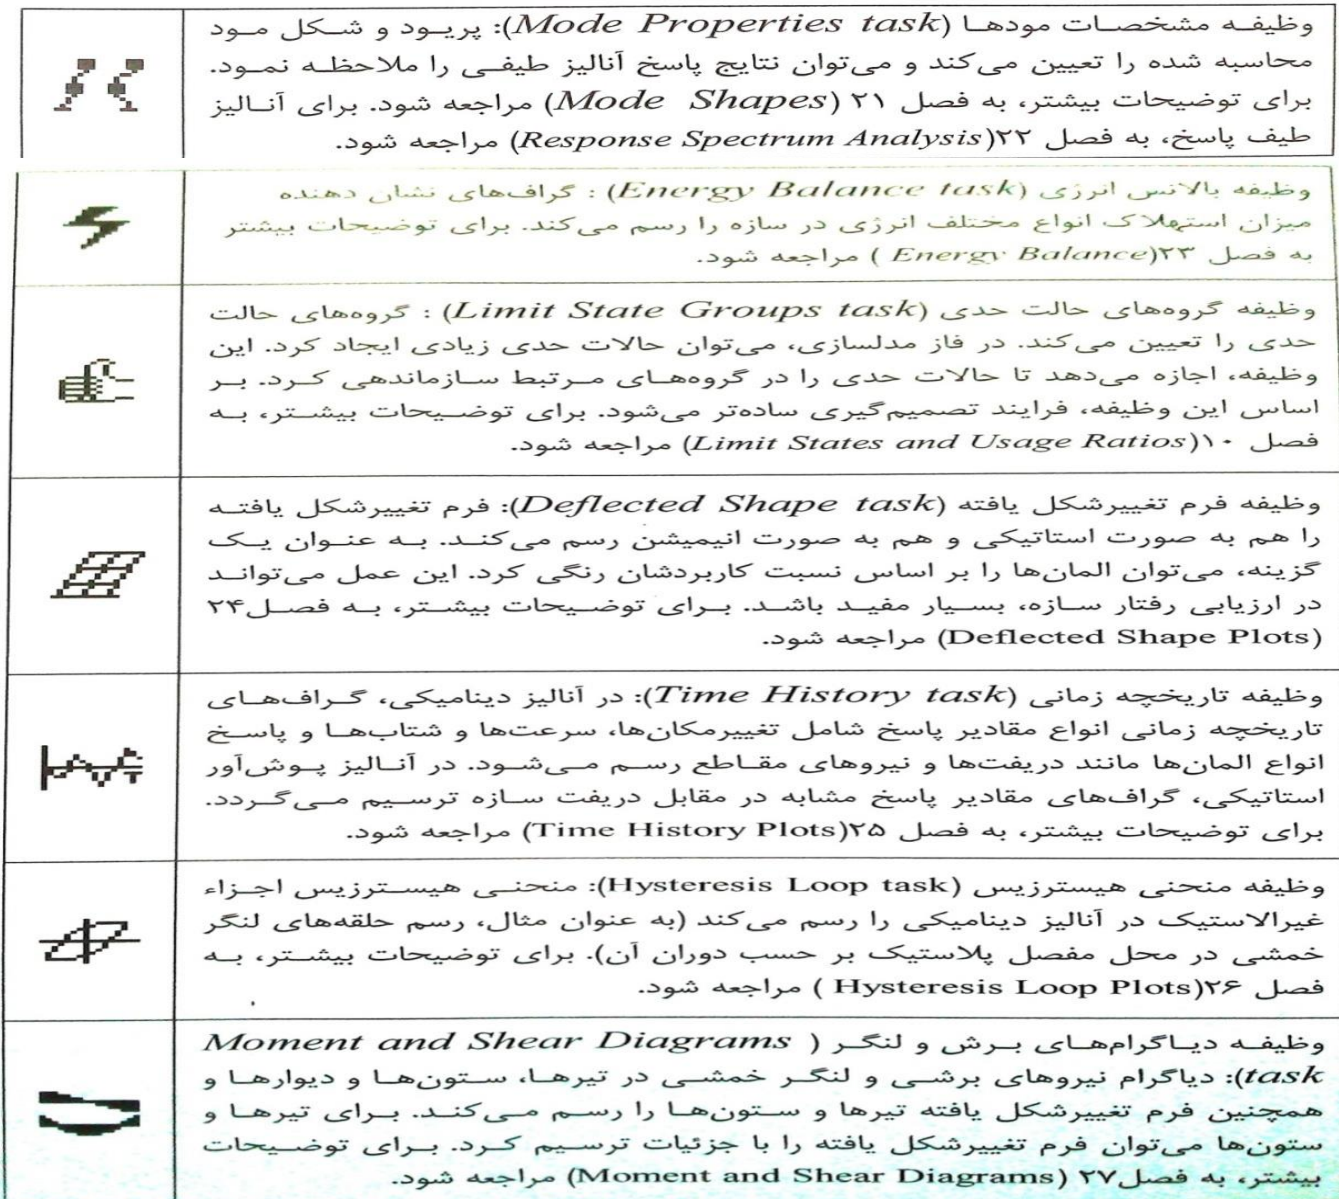 وظیفه مشخصات مودها (Mode Properties task): پریود و شکل مود
محاسبه شده را تعیین می‌کند و می‌توان نتایج پاسخ آنالیز طیفی را ملاحظه نمود.
برای توضیحات بیشتر، به فصل ۲۱ (Mode Shapes) مراجعه شود. برای آنالیز
طیف پاسخ، به فصل ۲۲(Response Spectrum Analysis) مراجعه شود.
وظیفه بالانس انرژی (Energy Balance task) : گراف‌های نشان دهنده
میزان استهلاک انواع مختلف انرژی در سازه را رسم می‌کند. برای توضیحات بیشتر
به فصل ۲۳(Energy Balance ) مراجعه شود.
وظیفه گروه‌های حالت حدی (Limit State Groups task) : گروه‌های حالت
حدی را تعیین می‌کند. در فاز مدلسازی، می‌توان حالات حدی زیادی ایجاد کرد. این
وظیفه، اجازه می‌دهد تا حالات حدی را در گروه‌های مرتبط سازماندهی کرد. بر
اساس این وظیفه، فرایند تصمیم‌گیری ساده‌تر می‌شود. برای توضیحات بیشتر، به
فصل ۱۰(Limit States and Usage Ratios) مراجعه شود.
وظیفه فرم تغییرشکل یافته (Deflected Shape task): فرم تغییرشکل یافته
را هم به صورت استاتیکی و هم به صورت انیمیشن رسم می‌کند. به عنوان یک
گزینه، می‌توان المان‌ها را بر اساس نسبت کاربردشان رنگی کرد. این عمل می‌تواند
در ارزیابی رفتار سازه، بسیار مفید باشد. برای توضیحات بیشتر، به فصل۲۴
(Deflected Shape Plots) مراجعه شود.
وظیفه تاریخچه زمانی (Time History task): در آنالیز دینامیکی، گراف‌های
تاریخچه زمانی انواع مقادیر پاسخ شامل تغییرمکان‌ها، سرعت‌ها و شتاب‌ها و پاسخ
انواع المان‌ها مانند دریفت‌ها و نیروهای مقاطع رسم می‌شود. در آنالیز پوش‌آور
استاتیکی، گراف‌های مقادیر پاسخ مشابه در مقابل دریفت سازه ترسیم می‌گردد.
برای توضیحات بیشتر، به فصل ۲۵(Time History Plots) مراجعه شود.
وظیفه منحنی هیسترزیس (Hysteresis Loop task): منحنی هیسترزیس اجزاء
غیرالاستیک در آنالیز دینامیکی را رسم می‌کند (به عنوان مثال، رسم حلقه‌های لنگر
خمشی در محل مفصل پلاستیک بر حسب دوران آن). برای توضیحات بیشتر، به
فصل ۲۶(Hysteresis Loop Plots ) مراجعه شود.
وظیفه دیاگرام‌های برش و لنگر ( Moment and Shear Diagrams
task): دیاگرام نیروهای برشی و لنگر خمشی در تیرها، ستون‌ها و دیوارها و
همچنین فرم تغییرشکل یافته تیرها و ستون‌ها را رسم می‌کند. برای تیرها و
ستون‌ها می‌توان فرم تغییرشکل یافته را با جزئیات ترسیم کرد. برای توضیحات
بیشتر، به فصل۲۷ (Moment and Shear Diagrams) مراجعه شود.